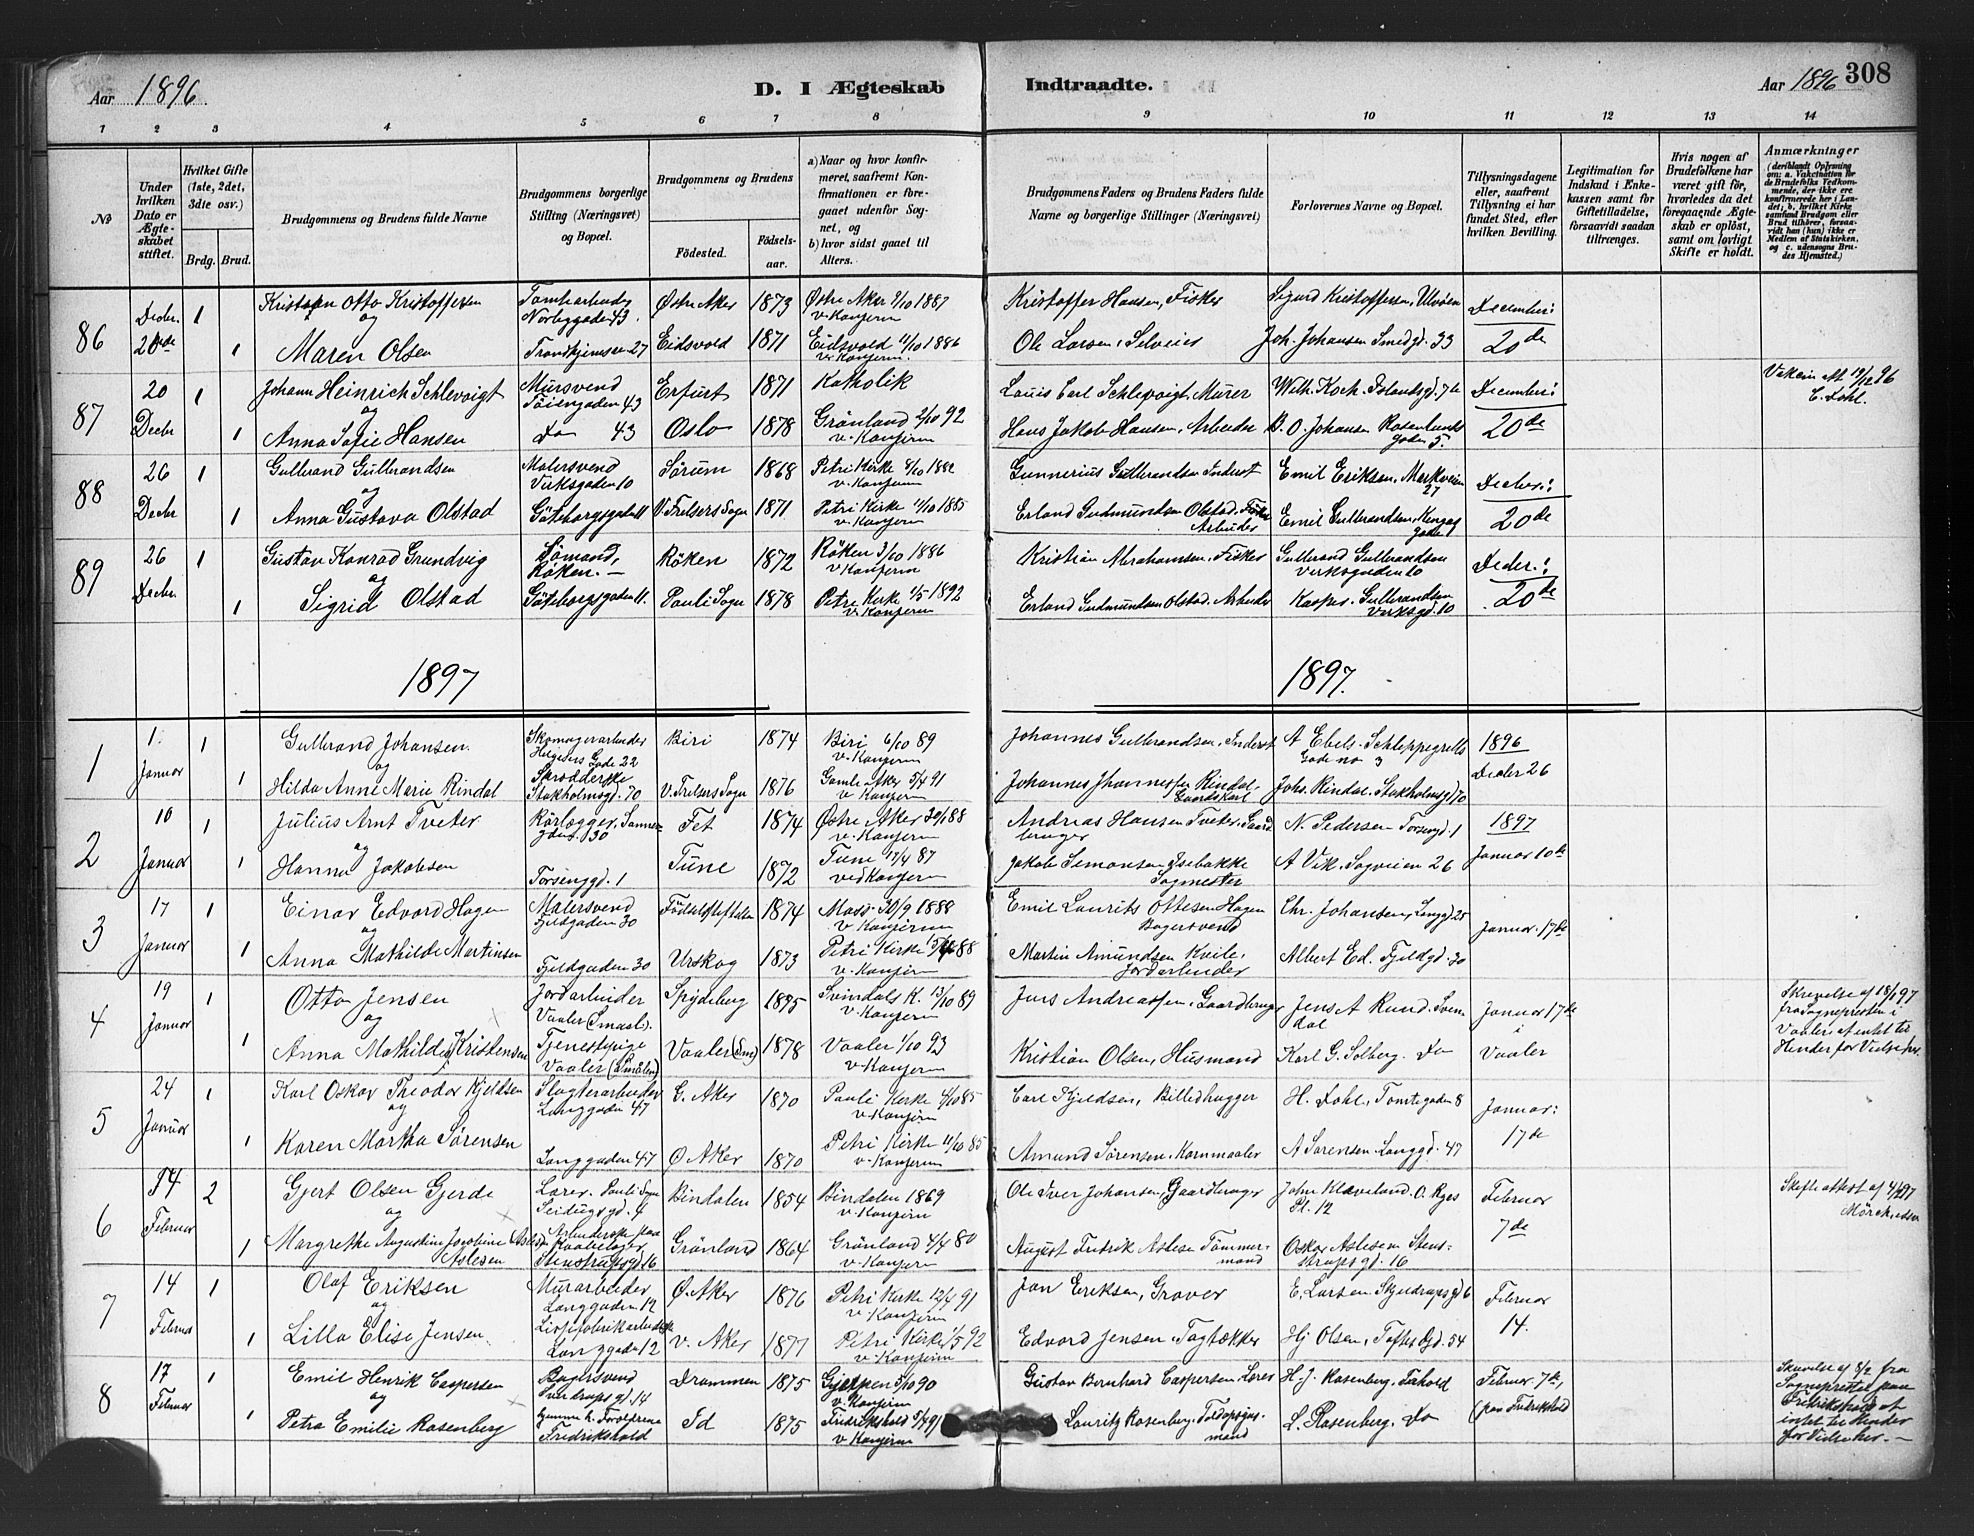 Aar 1896.
D. I Ægteskab
Indtraadte.
Aar 1896 308
1 2 3 4 5 6 7 8 9 10 11 12 13 14
No
Under hvilken Dato er Ægteskabet stiftet.
Hvilket Gifte (1ste, 2det, 3die osv.)
Brdg. Brud.
Brudgommens og Brudens fulde Navne
Brudgommens borgerlige Stilling (Næringsvei) og Bopæl.
Brudgommens og Brudens
Fødested.
Fødselsaar.
a) Naar og hvor konfirmeret, saafremt Konfirmationen er foregaaet udenfor Sognet, og
b) hvor sidst gaaet til Alters.
Brudgommens Faders og Brudens Faders fulde Navne og borgerlige Stillinger (Næringsvei)
Forlovernes Navne og Bopæl.
Tillysningsdagene eller, saafremt Tillysning ei har fundet Sted, efter hvilken Bevilling.
Legitimation for Indskud i Enkekassen samt for Giftetilladelse, forsaavidt saadan tiltrænges.
Hvis nogen af Brudefolkene har været gift før, hvorledes da det foregaaende Ægteskab er opløst, samt om lovligt Skifte er holdt.
Anmærkninger
(deriblandt Oplysning om: a. Vakcination for de Brudefolks Vedkommende, der ikke ere konfirmerede her i Landet; b. hvilket Kirkesamfund Brudgom eller Brud tilhører, forsaavidt han (hun) ikke er Medlem af Statskirken, og c. udensogns Brudes Hjemsted.)
86 Decbr. 20de 1 Kristian Otto Kristoffersen Tomtearbeider Norbygaden 43. Østre Aker 1873 Østre Aker 9/10 1887 v. Konfirm Kristoffer Hansen, Fisker Sigurd Kristoffersen, Ulvøen Decemberi
og
1 Maren Olsen Trondhjemsv. 27 Eidsvold 1871 Eidsvold 11/10 1886 v. Konfirm. Ole Larsen, Selveier Joh. Johansen Smedgd. 33 20de
87 20 Decbr 1 Johann Heinrich Schlevoigt Mursvend Tøiengaden 43 Erfurt 1871 Katholik Louis Carl Schlevoigt, Murer Wilh. Koch, Islandsgd. 7b Decemberi Vakcin att 19/12 96 E. Dahl.
og
1 Anna Sofie Hansen Do 43 Oslo 1878 Grønland 2/10 92 v. Konfirm Hans Jakob Hansen, Arbeider B. O. Johansen Rosenlundsgaden 5. 20de
88 26 Decbr 1 Gulbrand Gulbrandsen Malersvend Verksgaden 10 Sørum 1868 Petri Kirke 8/10 1882 v. Konfirm Gunnerius Gulbrandsen Inderst Emil Eriksen, Markveien 27 Decbr.:
og
1 Anna Gustava Olstad Göteborgsgaden 11 V. Frelsers Sogn 1871 Petri Kirke 11/10 1885 v. Konfirm Erland Gudmundsen Olstad, Arbeider Emil Gulbrandsen, 20de
89 26 Decbr. 1 Gustav Konrad Grundvig Sømand, Røken. — Røken 1872 Røken 3/10 1886 v Konfirm Kristian Abrahamsen, Fisker Gulbrand Gulbrandsen Verksgaden 10 Decbr.:
og
1 Sigrid Olstad Göteborgsgaden 11. Pauli Sogn 1878 Petri Kirke 1/5 1892 v. Konfirm Erland Gudmundsen Olstad. Arbeider Kasper Gulbrandsen Verksgd. 10 20de
1897 1897.
1 1. Januar 1 Gulbrand Johansen Skomagerarbeider Helgesens Gade 22 Biri 1874 Biri 6/10 89 v. Konfirm Johannes Gulbrandsen, Inderst A Ebels. Schleppegrells Gade no 3 1896
og
1 Hilda Anne Marie Rindal Stokholmsgd. 70 V. Frelsers Sogn 1876 Gamle Aker 5/4 91 v Konfirm Johannes Johannessen Rindal, Johs. Rindal, Stokholmsgd 70 Decbr 26
2 10 Januar 1 Julius Arnt Tveter Rørlegger, Sannergdens. 30 Fet 1874 Østre Aker 30/9 88 v. Konfirm Andreas Hansen Tveter, Gaardbruger N. Pedersen Torsengd. 1 1897
og
1 Hanna Jakobsen Torsenggd. 1 Tune 1872 Tune 17/4 87 ved Konfirm Jakob Simonsen Isebakke Sagmester A Vik. Sagveien 26 Januar 10de
3 17 Januar 1 Einar Edvard Hagen Malersvend Fjeldgaden 30 Fødselsstiftelsen 1874 Moss 30/9 1888 v Konfirm Emil Laurits Ottesen Hagen Bagersvend Chr. Johansen, Langgd 25 Januar. 17de
og
1 Anna Mathilde Martinsen Fjeldgaden 30 Urskog 1873 Petri Kirke 88 v. Konfirm Martin Amundsen Kvile, Jordarbeider Albert Ed. Fjeldgd. 30
4 19 Januar 1 Otto Jensen Jordarbeider Vaaler (Smaal). Spydeberg 1895 Svindals K. 13/10 89 v. Konfirm Jens Andreassen, Gaardbruger Jens A Rund. Svendal Januar 17de i Skrivelse af 18/1 97 fra Sognepresten i Vaaler, at intet til Hinder for Vielse her.
og
1 Anna Mathilde Kristensen Tjenestepige Vaaler (Smaalen) Vaaler (Sm) 1878 Vaaler 1/10 93 v. Konfirm Kristian Olsen, Husmand Karl G. Solberg. Do Vaaler
5 24 Januar 1 Karl Oskar Theodor Kjeldsen Slagterarbeider Langgaden 47 G. Aker 1870 Pauli Kirke 4/10 85 v. Konfirm Carl Kjeldsen, Billedhugger H. Dahl, Tomtegaden 8 Januar:
og
1 Karen Martha Sørensen Langgaden 47 Ø. Aker 1870 Petri Kirke 11/10 85 v. Konfirm Amund Sørensen, Kornmaaler A Sørensen. Langgd. 47 17de
6 14 Februar 2 Gjert Olsen Gjerde Lærer. Pauli Sogn Bindalen 1854 Bindalen 1869 v. Konfirm Ole Iver Johansen, Gaardbruger John Klaveland. O. Ryes Pl. 12 Februar Skifteattest af 4/2 97 Mørck
og
1 Margrethe Augustine Jacobine Aslesen Stenstrupsgd. 16 Grønland 1864 Grønland 4/4 80 v. Konfirm August Fredrik Aslesen Tømmermand Oskar Aslesen Stenstrupsgd. 16 7de
7 14 Februar 1 Olaf Eriksen Murarbeider Langgaden 12 Ø. Aker 1876 Petri Kirke 12/4 91 v. Konfirm Jon Eriksen, Graver E. Larsen Skjeldrupsgd 6 Februar
og
1 Lilla Elise Jensen Langgaden 12 V. Aker 1877 Petri Kirke 1/5 92 v. Konfirm Edvard Jensen. Tagtækker Hj Olsen, Toftesgd. 54 14.
8 17 Februar 1 Emil Henrik Caspersen Bagersvend Sverdrupsgd. 14 Drammen 1875 Gjerpen 5/10 90 v. Konfirm Gustav Bernhard Caspersen. Lærer H. J. Rosenberg, Fr.hald Februar 7de, Skrivelse af 8/2 fra Sognepresten paa Fredrikshald at intet til Hinder for Vielse her. —
og
1 Petra Emilie Rosenberg hjemme h. Forældrene Fredrikshald Id 1875 Fredrikshald 5/4 91 v Konfirm Laurits Rosenberg, Toldopsynsmand L. Rosenberg. Do (paa Fredrikshald